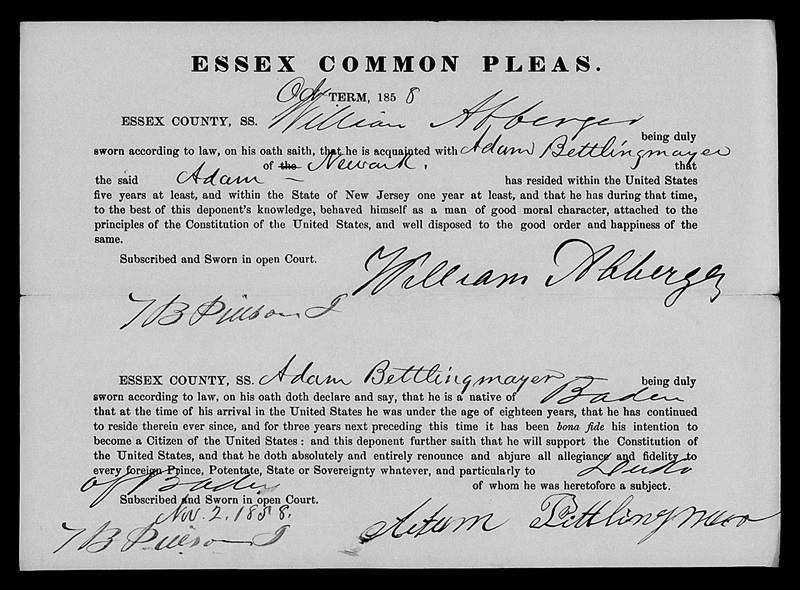 ESSEX COMMON PLEAS.
Oct TERM, 1858
ESSEX COUNTY, SS. William Abberger being duly
sworn according to law, on his oath saith, that he is acquainted with Adam Bettlingmayer
of the Newark. that
the said Adam — has resided within the United States
five years at least, and within the State of New Jersey one year at least, and that he has during that time,
to the best of this deponent's knowledge, behaved himself as a man of good moral character, attached to the
principles of the Constitution of the United States, and well disposed to the good order and happiness of the
same.
Subscribed and Sworn in open Court.
William Abberger
ESSEX COUNTY, SS. Adam Bettlingmayer being duly
sworn according to law, on his oath doth declare and say, that he is a native of Baden
that at the time of his arrival in the United States he was under the age of eighteen years, that he has continued
to reside therein ever since, and for three years next preceding this time it has been bona fide his intention to
become a Citizen of the United States: and this deponent further saith that he will support the Constitution of
the United States, and that he doth absolutely and entirely renounce and abjure all allegiance and fidelity to
every foreign Prince, Potentate, State or Sovereignty whatever, and particularly to
of Baden of whom he was heretofore a subject.
Subscribed and Sworn in open Court.
Nov. 2. 1858.
Adam